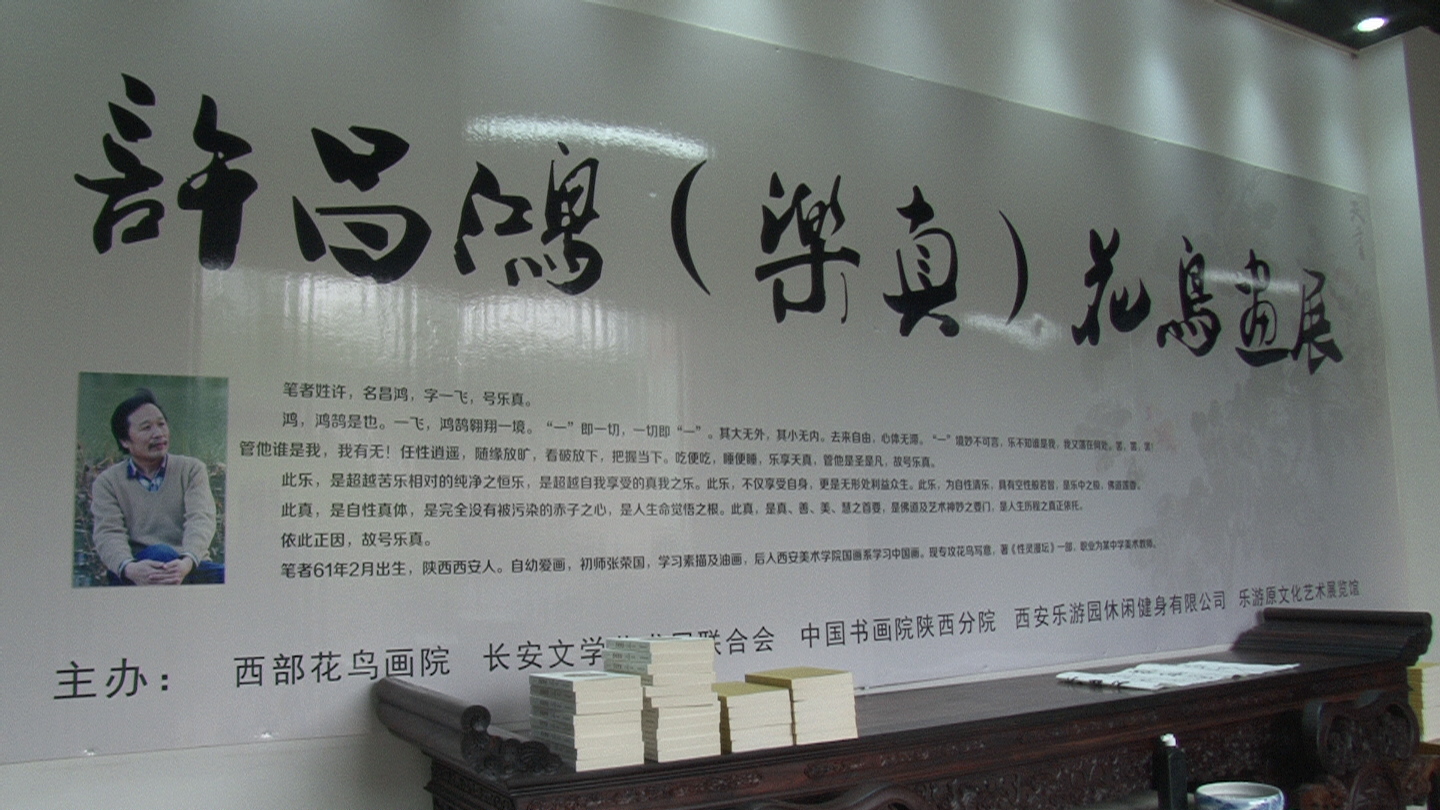 許昌鴻（樂真）花鳥畫展
笔者姓许，名昌鸿，字一飞，号乐真。
鸿，鸿鹄是也。一飞，鸿鹄翱翔一境。“一”即一切，一切即“一”。其大无外，其小无内。去来自由，心体无滞。“一”境妙不可言，乐不知谁是我，我又落在何处。苦，苦，苦！
管他谁是我，我有无！任性逍遥，随缘放旷，看破放下，把握当下。吃便吃，睡便睡，乐享天真，管他是圣是凡，故号乐真。
此乐，是超越苦乐相对的纯净之恒乐，是超越自我享受的真我之乐。此乐，不仅享受自身，更是无形处利益众生。此乐，为自性清乐，具有空性般若智，是乐中之极，佛道莲香。
此真，是自性真体，是完全没有被污染的赤子之心，是人生命觉悟之根。此真，是真、善、美、慧之首要，是佛道及艺术神妙之要门，是人生历程之真正依托。
依此正因，故号乐真。
笔者61年2月出生，陕西西安人。自幼爱画，初师张荣国，学习素描及油画，后入西安美术学院国画系学习中国画。现专攻花鸟写意，著《性灵漫坛》一部，职业为某中学美术教师。
主办：西部花鸟画院 长安文学 联合会 中国书画院陕西分院 西安乐游园休闲健身有限公司 乐游原文化艺术展览馆